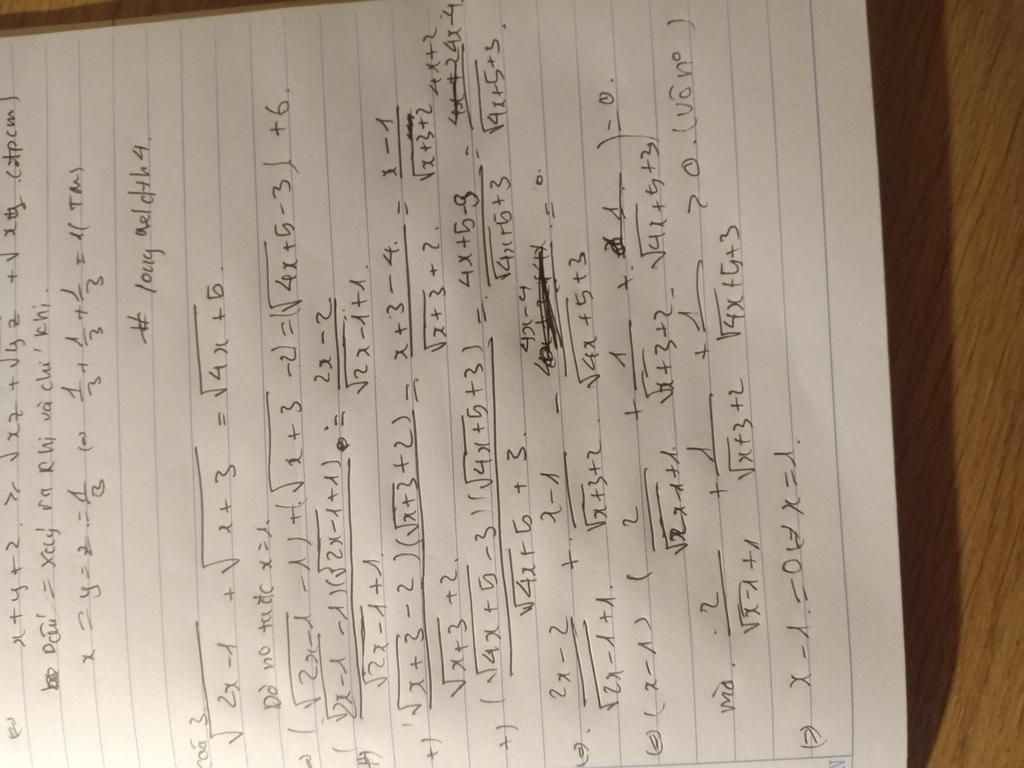 x+y+z ≥ √xz + √yz + √xy (đpcm)
Dấu = xảy ra khi và chỉ khi
x = y = z = 1/3 (=) 1/3 + 1/3 + 1/3 = 1 (TM)
# longaeldth4.
câu 3
√2x-1 + √x+3 = √4x+5
Dò no trước x=1.
(√2x-1 -1) + (√x+3 -2) = (√4x+5 -3) + 6.
(√2x-1 -1)(√2x-1+1) / √2x-1+1 = 2x-2 / √2x-1+1
+) (√x+3 -2)(√x+3+2) / √x+3+2 = x+3-4 / √x+3+2 = x-1 / √x+3+2
+) (√4x+5 -3)(√4x+5+3) / √4x+5+3 = 4x+5-9 / √4x+5+3 = 4x-4 / √4x+5+3
(=) 2x-2 / √2x-1+1 + x-1 / √x+3+2 - 4x-4 / √4x+5+3 = 0.
(=) (x-1) ( 2 / √2x-1+1 + 1 / √x+3+2 + 1 / √4x+5+3 ) = 0.
mà 2 / √x-1+1 + 1 / √x+3+2 + 1 / √4x+5+3 > 0. (vô nº)
(=) x-1=0 (=) x=1.